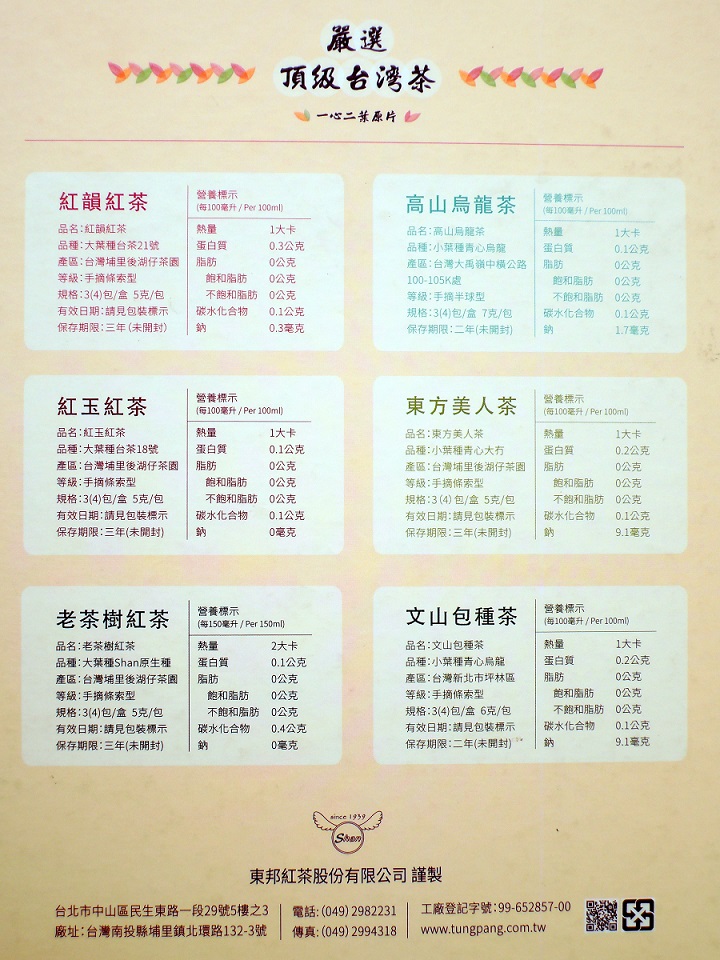 嚴選
頂級台灣茶
一心二葉原片
紅韻紅茶
營養標示
(每100毫升 / Per 100ml)
品名:紅韻紅茶
品種:大葉種台茶21號
產區:台灣埔里後湖仔茶園
等級:手摘條索型
規格:3(4)包/盒 5克/包
有效日期:請見包裝標示
保存期限:三年(未開封)
熱量 1大卡
蛋白質 0.3公克
脂肪 0公克
飽和脂肪 0公克
不飽和脂肪 0公克
碳水化合物 0.1公克
鈉 0.3毫克
高山烏龍茶
營養標示
(每100毫升 / Per 100ml)
品名:高山烏龍茶
品種:小葉種青心烏龍
產區:台灣大禹嶺中橫公路
100-105K處
等級:手摘半球型
規格:3(4)包/盒 7克/包
保存期限:二年(未開封)
熱量 1大卡
蛋白質 0.1公克
脂肪 0公克
飽和脂肪 0公克
不飽和脂肪 0公克
碳水化合物 0.1公克
鈉 1.7毫克
紅玉紅茶
營養標示
(每100毫升 / Per 100ml)
品名:紅玉紅茶
品種:大葉種台茶18號
產區:台灣埔里後湖仔茶園
等級:手摘條索型
規格:3(4)包/盒 5克/包
有效日期:請見包裝標示
保存期限:三年(未開封)
熱量 1大卡
蛋白質 0.1公克
脂肪 0公克
飽和脂肪 0公克
不飽和脂肪 0公克
碳水化合物 0.1公克
鈉 0毫克
東方美人茶
營養標示
(每100毫升 / Per 100ml)
品名:東方美人茶
品種:小葉種青心大冇
產區:台灣埔里後湖仔茶園
等級:手摘條索型
規格:3(4)包/盒 5克/包
有效日期:請見包裝標示
保存期限:三年(未開封)
熱量 1大卡
蛋白質 0.2公克
脂肪 0公克
飽和脂肪 0公克
不飽和脂肪 0公克
碳水化合物 0.1公克
鈉 9.1毫克
老茶樹紅茶
營養標示
(每150毫升 / Per 150ml)
品名:老茶樹紅茶
品種:大葉種Shan原生種
產區:台灣埔里後湖仔茶園
等級:手摘條索型
規格:3(4)包/盒 5克/包
有效日期:請見包裝標示
保存期限:三年(未開封)
熱量 2大卡
蛋白質 0.1公克
脂肪 0公克
飽和脂肪 0公克
不飽和脂肪 0公克
碳水化合物 0.4公克
鈉 0毫克
文山包種茶
營養標示
(每100毫升 / Per 100ml)
品名:文山包種茶
品種:小葉種青心烏龍
產區:台灣新北市坪林區
等級:手摘條索型
規格:3(4)包/盒 6克/包
有效日期:請見包裝標示
保存期限:二年(未開封)
熱量 1大卡
蛋白質 0.2公克
脂肪 0公克
飽和脂肪 0公克
不飽和脂肪 0公克
碳水化合物 0.1公克
鈉 9.1毫克
since 1959
Shan
東邦紅茶股份有限公司 謹製
台北市中山區民生東路一段29號5樓之3
廠址:台灣南投縣埔里鎮北環路132-3號
電話:(049) 2982231
傳真:(049) 2994318
工廠登記字號:99-652857-00
www.tungpang.com.tw